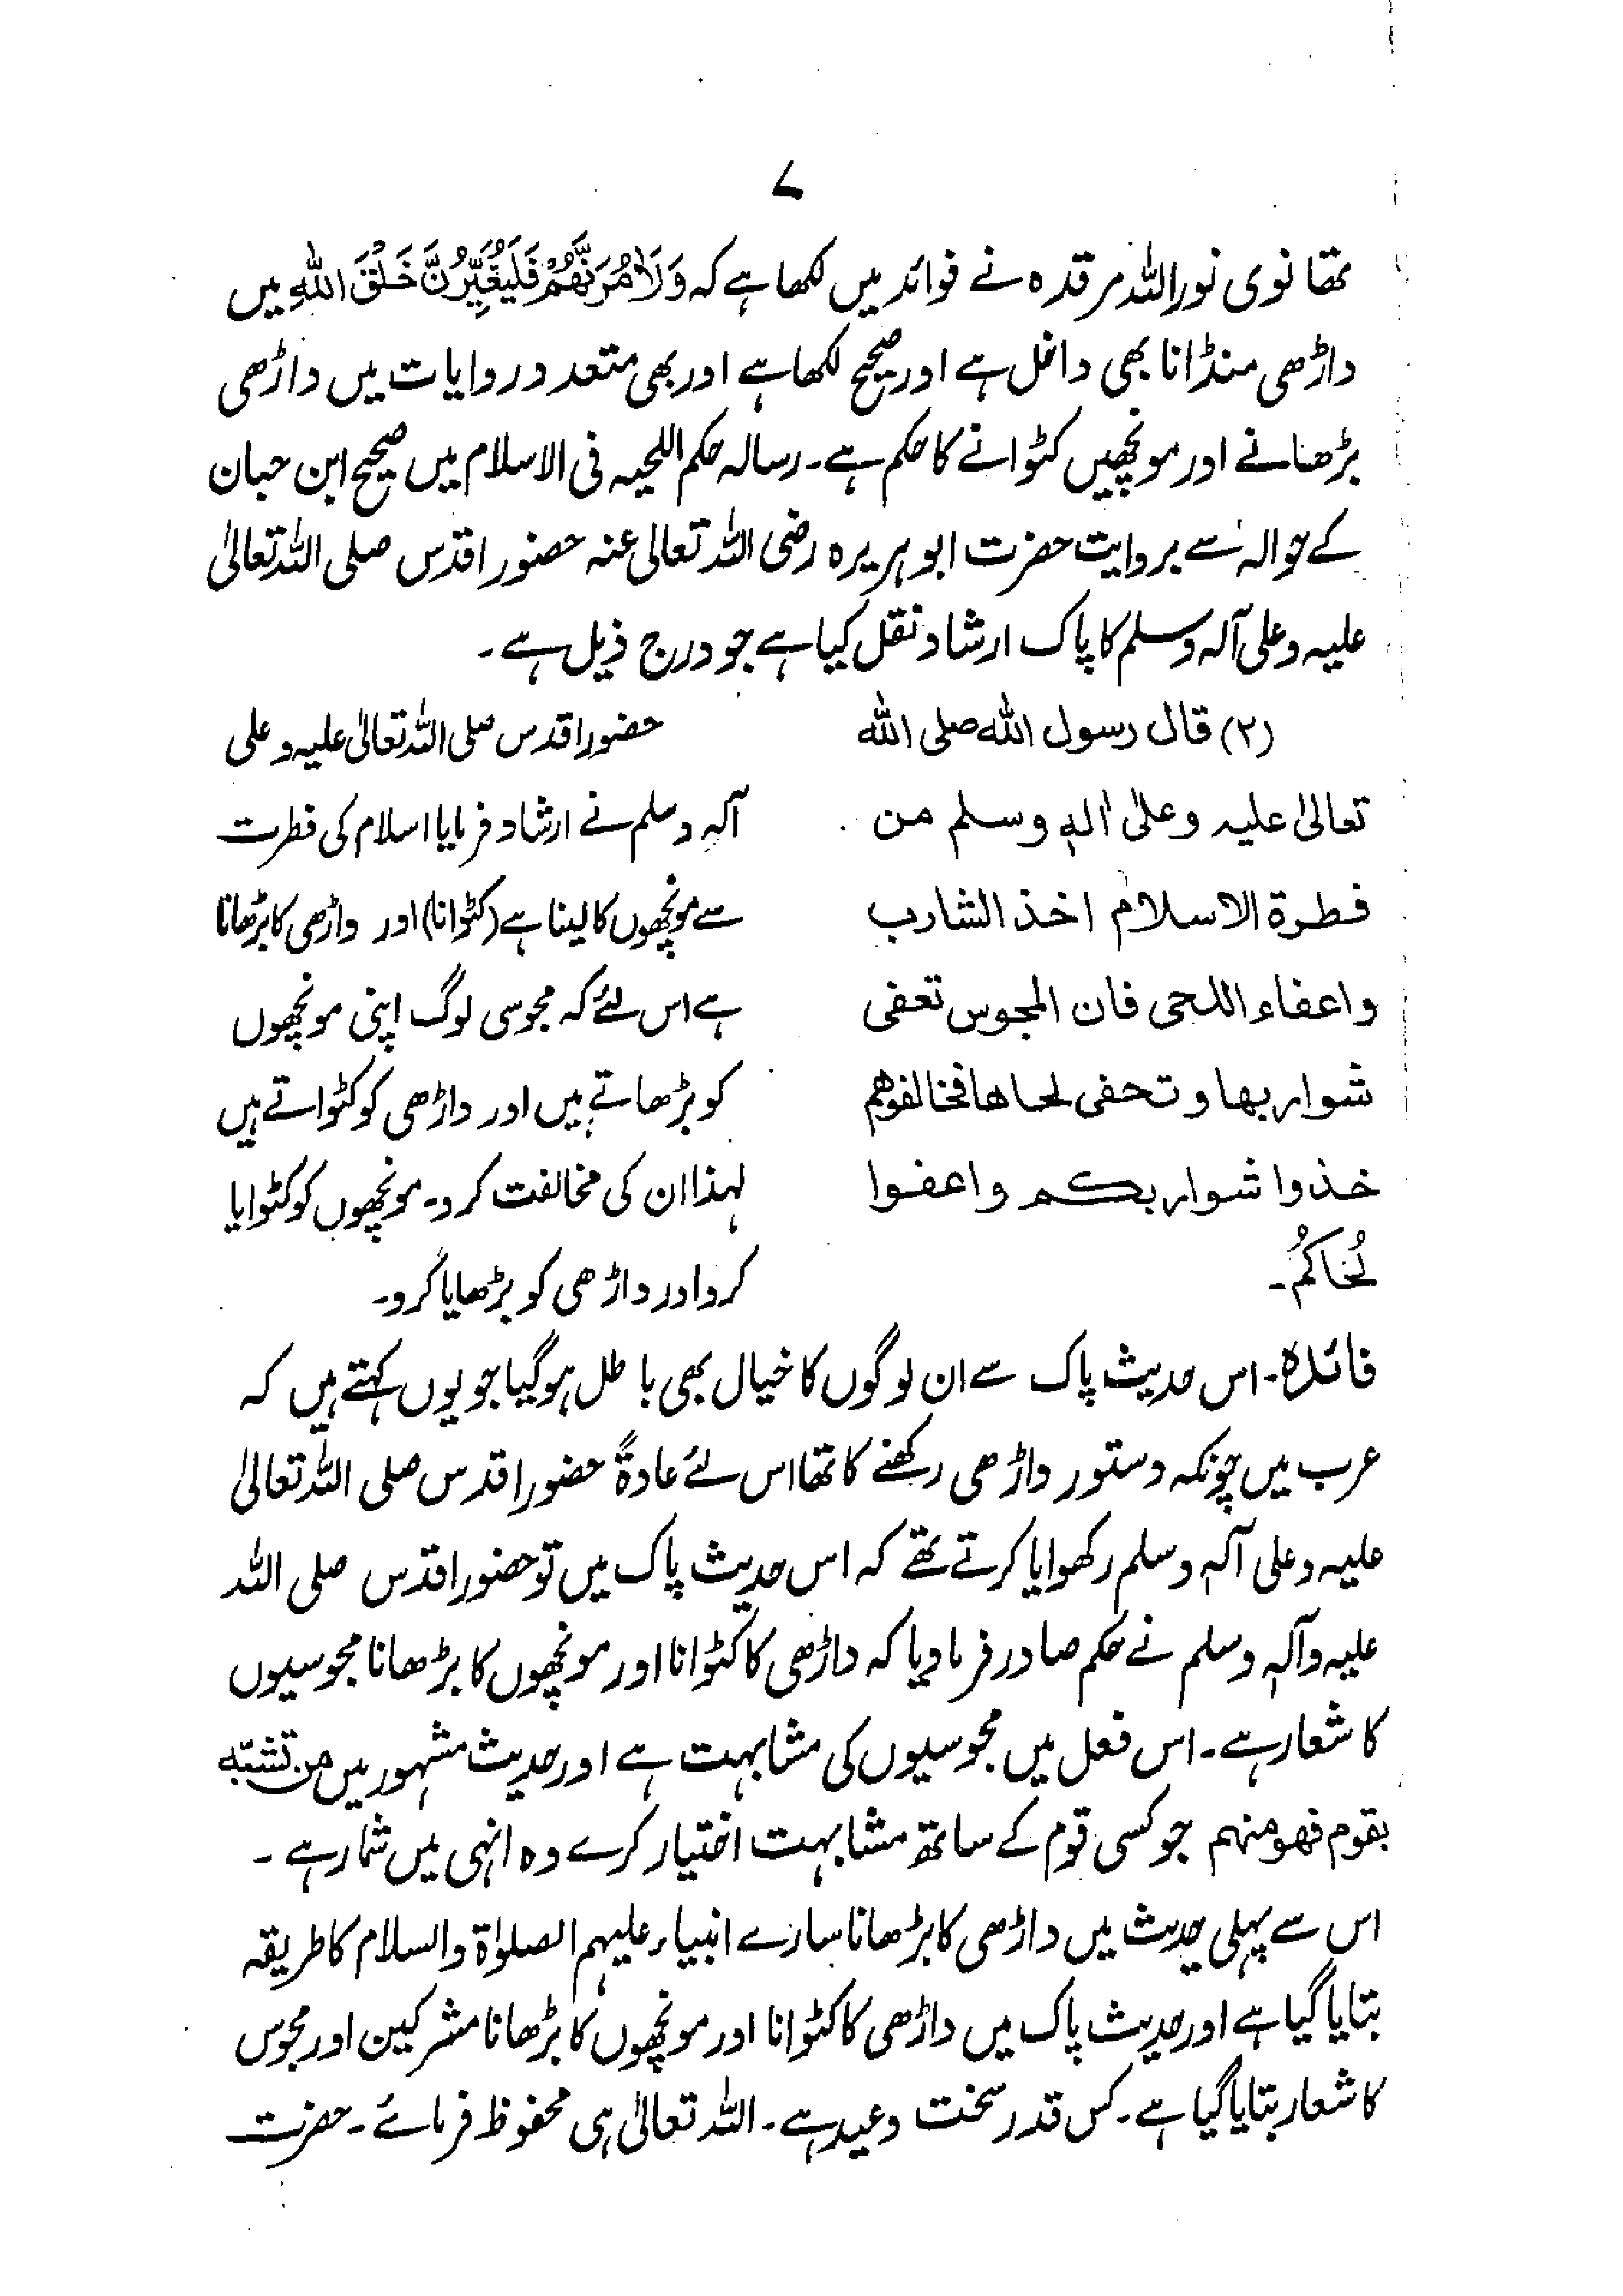 ۷
تھانوی نور اللہ مرقدہ نے فوائد میں لکھا ہے کہ وَلَاٰمُرَنَّهُمْ فَلَيُغَيِّرُنَّ خَلْقَ اللّٰهِ میں
داڑھی منڈانا بھی داخل ہے اور صحیح لکھا ہے اور بھی متعدد روایات میں داڑھی
بڑھانے اور مونچھیں کٹوانے کا حکم ہے۔ رسالہ حکم اللحیہ فی الاسلام میں صحیح ابن حبان
کے حوالہ سے بروایت حضرت ابو ہریرہ رضی اللہ تعالیٰ عنہ حضور اقدس صلی اللہ تعالیٰ
علیہ و علی آلہ وسلم کا پاک ارشاد نقل کیا ہے جو درج ذیل ہے۔
(۲) قال رسول الله صلى الله
تعالیٰ علیہ وعلیٰ اٰلہٖ وسلم من
فطرة الاسلام اخذ الشارب
واعفاء اللحی فان المجوس تعفی
شواربها و تحفی لحاها فخالفوهم
خذوا شواربکم واعفوا
لُحَاكُمُ۔
حضور اقدس صلی اللہ تعالیٰ علیہ و علی
آلہٖ وسلم نے ارشاد فرمایا اسلام کی فطرت
سے مونچھوں کا لینا ہے (کٹوانا) اور داڑھی کا بڑھانا
ہے اس لئے کہ مجوسی لوگ اپنی مونچھوں
کو بڑھاتے ہیں اور داڑھی کو کٹواتے ہیں
لہذا ان کی مخالفت کرو۔ مونچھوں کو کٹوایا
کرو اور داڑھی کو بڑھایا کرو۔
فائدہ۔ اس حدیث پاک سے ان لوگوں کا خیال بھی باطل ہو گیا جو یوں کہتے ہیں کہ
عرب میں چونکہ دستور داڑھی رکھنے کا تھا اس لئے عادۃً حضور اقدس صلی اللہ تعالیٰ
علیہ و علی آلہٖ وسلم رکھوایا کرتے تھے کہ اس حدیث پاک میں تو حضور اقدس صلی اللہ
علیہ وآلہٖ وسلم نے حکم صادر فرما دیا کہ داڑھی کا کٹوانا اور مونچھوں کا بڑھانا مجوسیوں
کا شعار ہے۔ اس فعل میں مجوسیوں کی مشابہت ہے اور حدیث مشہور میں من تشبّہ
بقوم فهو منهم جو کسی قوم کے ساتھ مشابہت اختیار کرے وہ انہی میں شمار ہے۔
اس سے پہلی حدیث میں داڑھی کا بڑھانا سارے انبیاء علیہم الصلوٰۃ والسلام کا طریقہ
بتایا گیا ہے اور حدیث پاک میں داڑھی کا کٹوانا اور مونچھوں کا بڑھانا مشرکین اور مجوس
کا شعار بتایا گیا ہے۔ کس قدر سخت وعید ہے۔ اللہ تعالیٰ ہی محفوظ فرمائے۔ حضرت